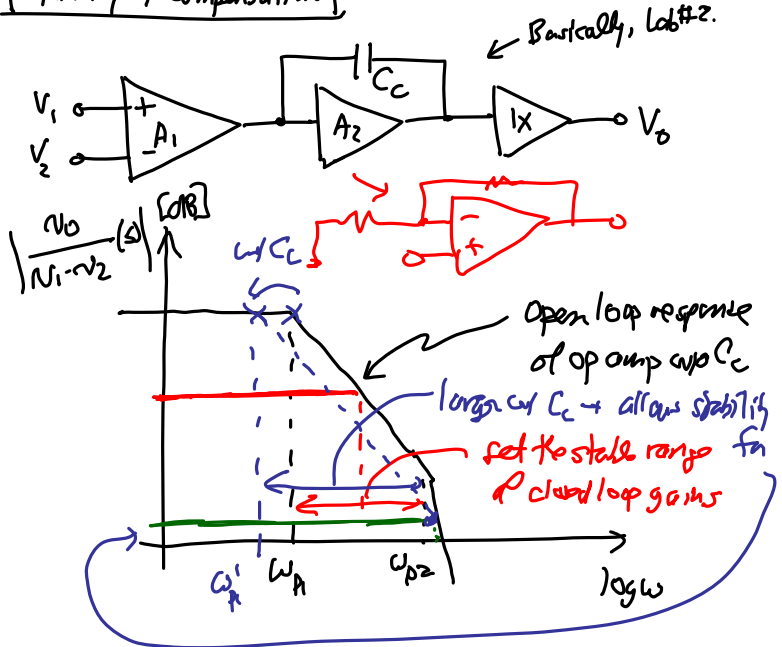 compensation
Basically, Lab #2.
C_c
V_1
+
A_1
V_2
-
A_2
1X
V_o
|v_o/(v_1-v_2) (s)| [dB]
w/ C_c
-
+
Open loop response
of op amp w/o C_c
larger w/ C_c → allows stability
for
set the stable range
of closed loop gains
ω_p1'
ω_p1
ω_p2
log ω